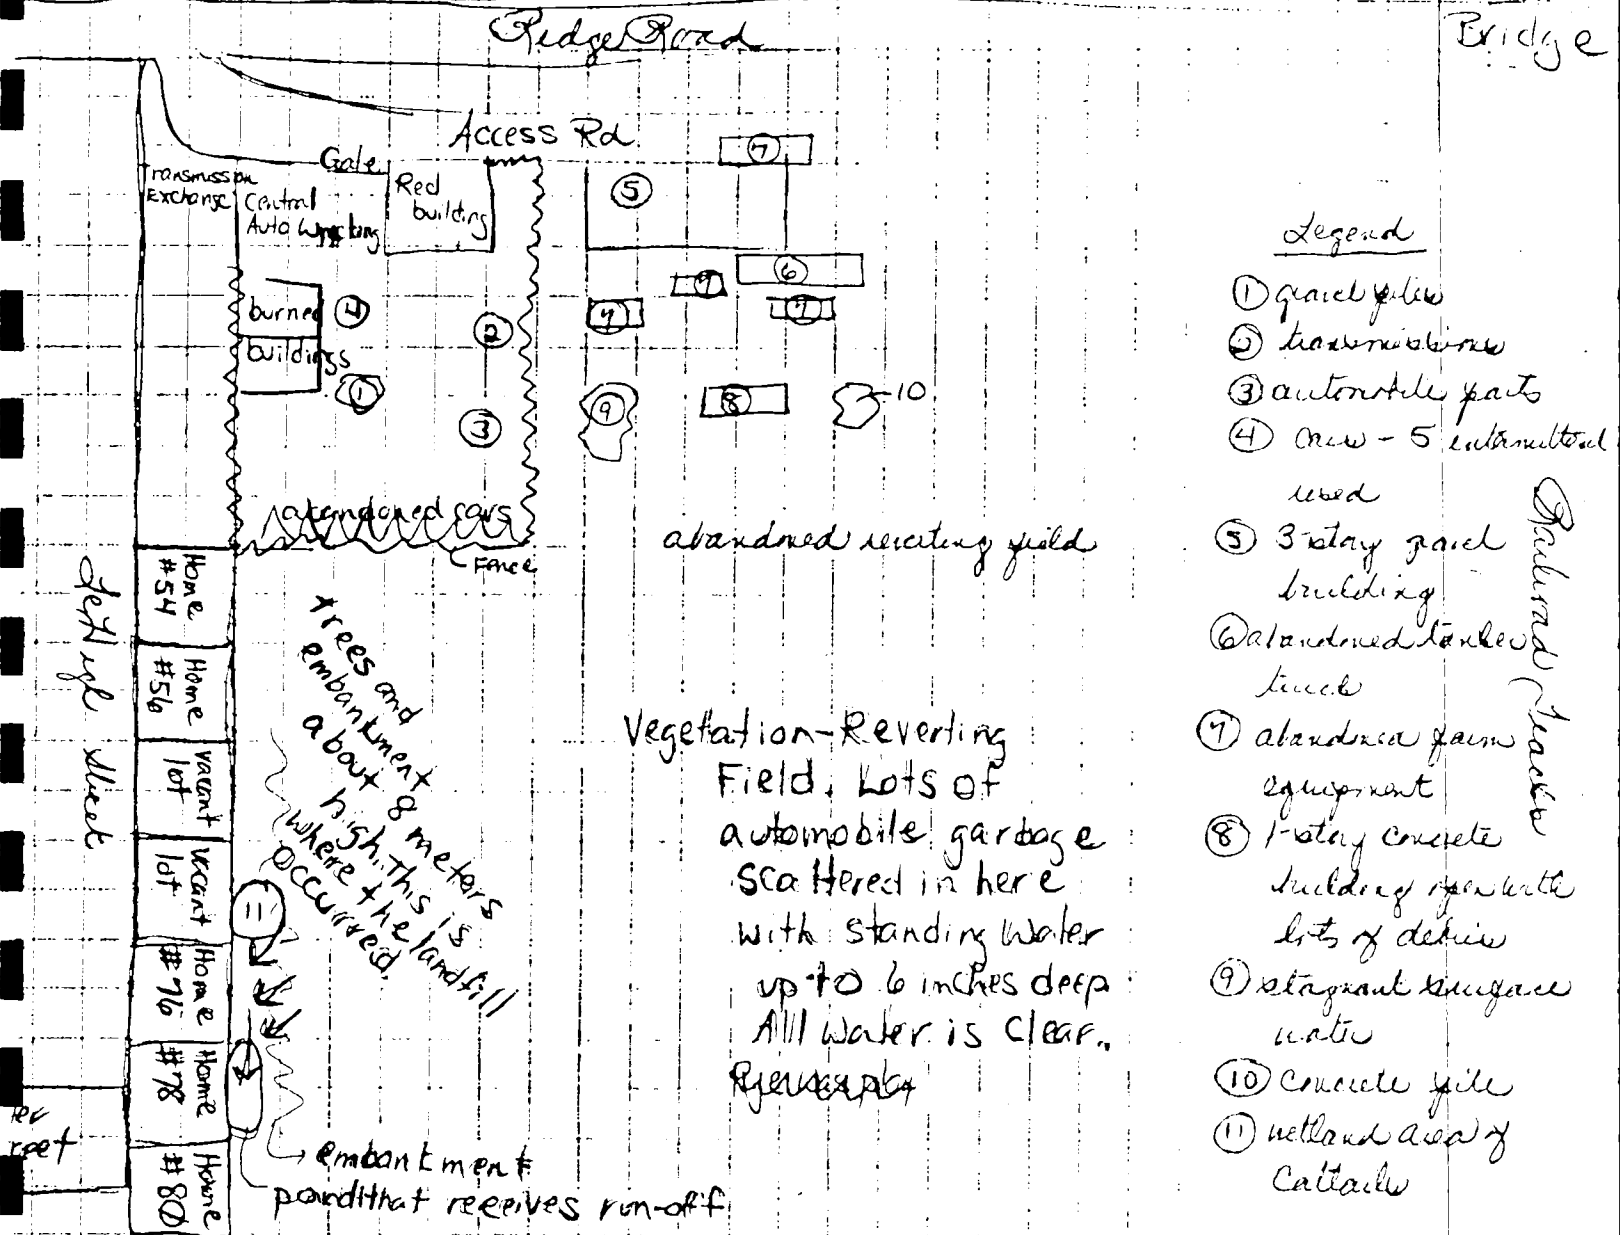 Ridge Road
Bridge
Access Rd
Gate
7
Transmission
Exchange
Central
Auto Wrecking
Red
building
5
6
7
7
7
burned
buildings
4
2
1
3
9
8
10
abandoned cars
Fence
abandoned reverting field
Home
#54
Home
#56
vacant
lot
vacant
lot
Home
#76
Home
#78
Home
#80
LeHigh Street
reet
trees and
embankment
about 8 meters
high. This is
where the landfill
occurred.
11
Vegetation-Reverting
Field. Lots of
automobile garbage
scattered in here
with standing water
up to 6 inches deep
All water is clear.
embankment
pond that receives run-off
Legend
1 gravel piles
2 transmissions
3 automobile parts
4 - 5
used
5 3-story
building
6 abandoned tanker
truck
7 abandoned farm
equipment
8 1-story concrete
building open with
lots of debris
9 stagnant surface
water
10 concrete pile
11 wetland area of
Cattails
Railroad Tracks